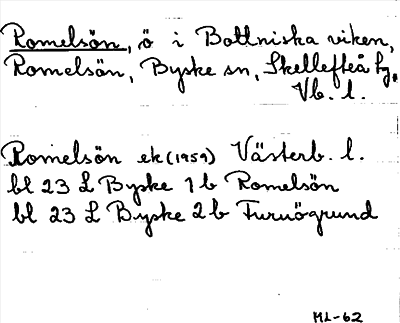 Romelsön, ö i Bottniska viken,
Romelsön, Byske sn, Skellefteå tg,
Vb. l.
Romelsön ek (1959) Västerb. l.
bl 23 L Byske 1 b Romelsön
bl 23 L Byske 2 b Furuögrund
ML-62